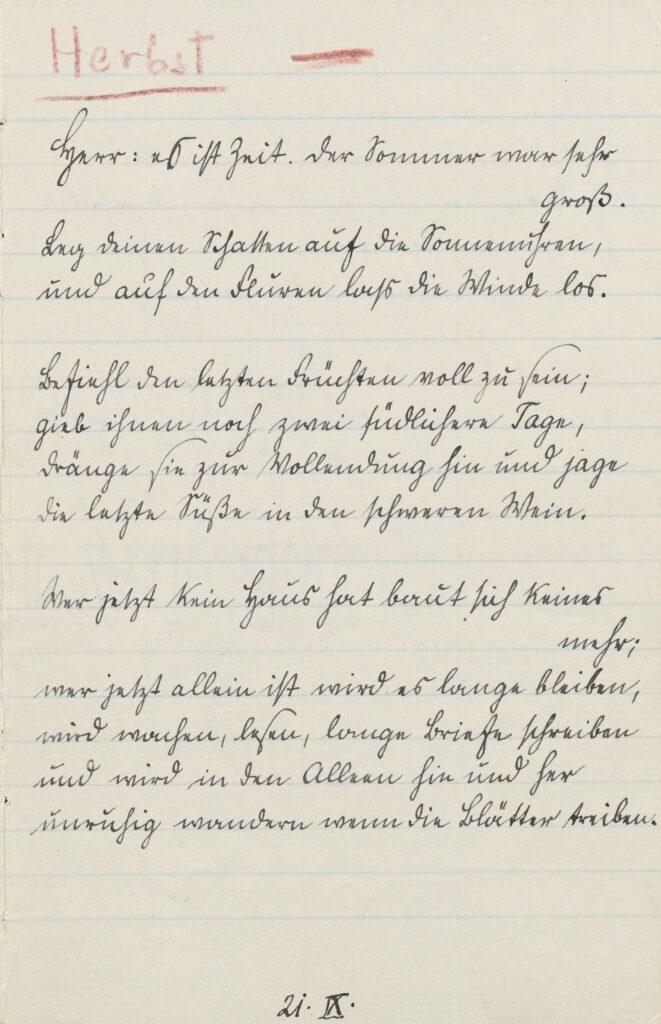 Herbst
Herr: es ist Zeit. Der Sommer war sehr
groß.
Leg deinen Schatten auf die Sonnenuhren,
und auf den Fluren laß die Winde los.
Befiehl den letzten Früchten voll zu sein;
gieb ihnen noch zwei südlichere Tage,
dränge sie zur Vollendung hin und jage
die letzte Süße in den schweren Wein.
Wer jetzt kein Haus hat baut sich keines
mehr;
wer jetzt allein ist wird es lange bleiben,
wird wachen, lesen, lange Briefe schreiben
und wird in den Alleen hin und her
unruhig wandern wenn die Blätter treiben.
21. IX.